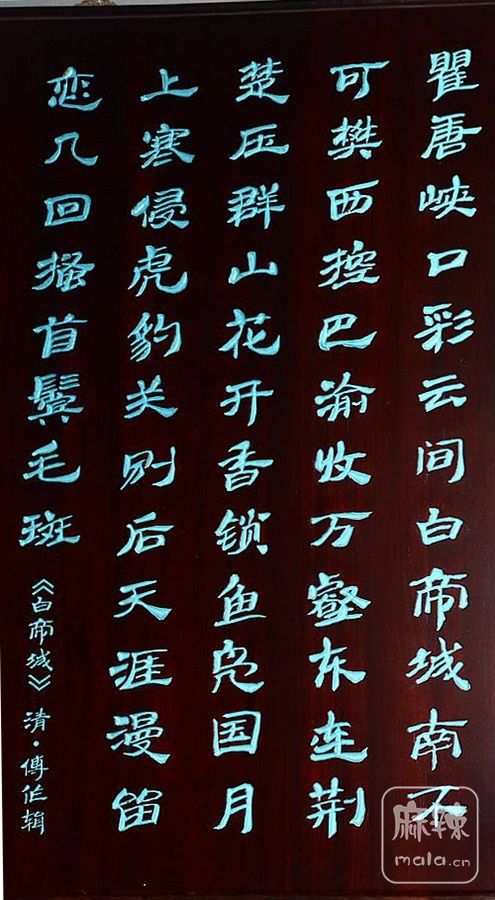 瞿唐峡口彩云间白帝城南不
可樊西控巴渝收万壑东连荆
楚压群山花开香锁鱼凫国月
上寒侵虎豹关别后天涯漫留
恋几回搔首鬓毛斑
《白帝城》清·傅作辑
麻辣
mala.cn